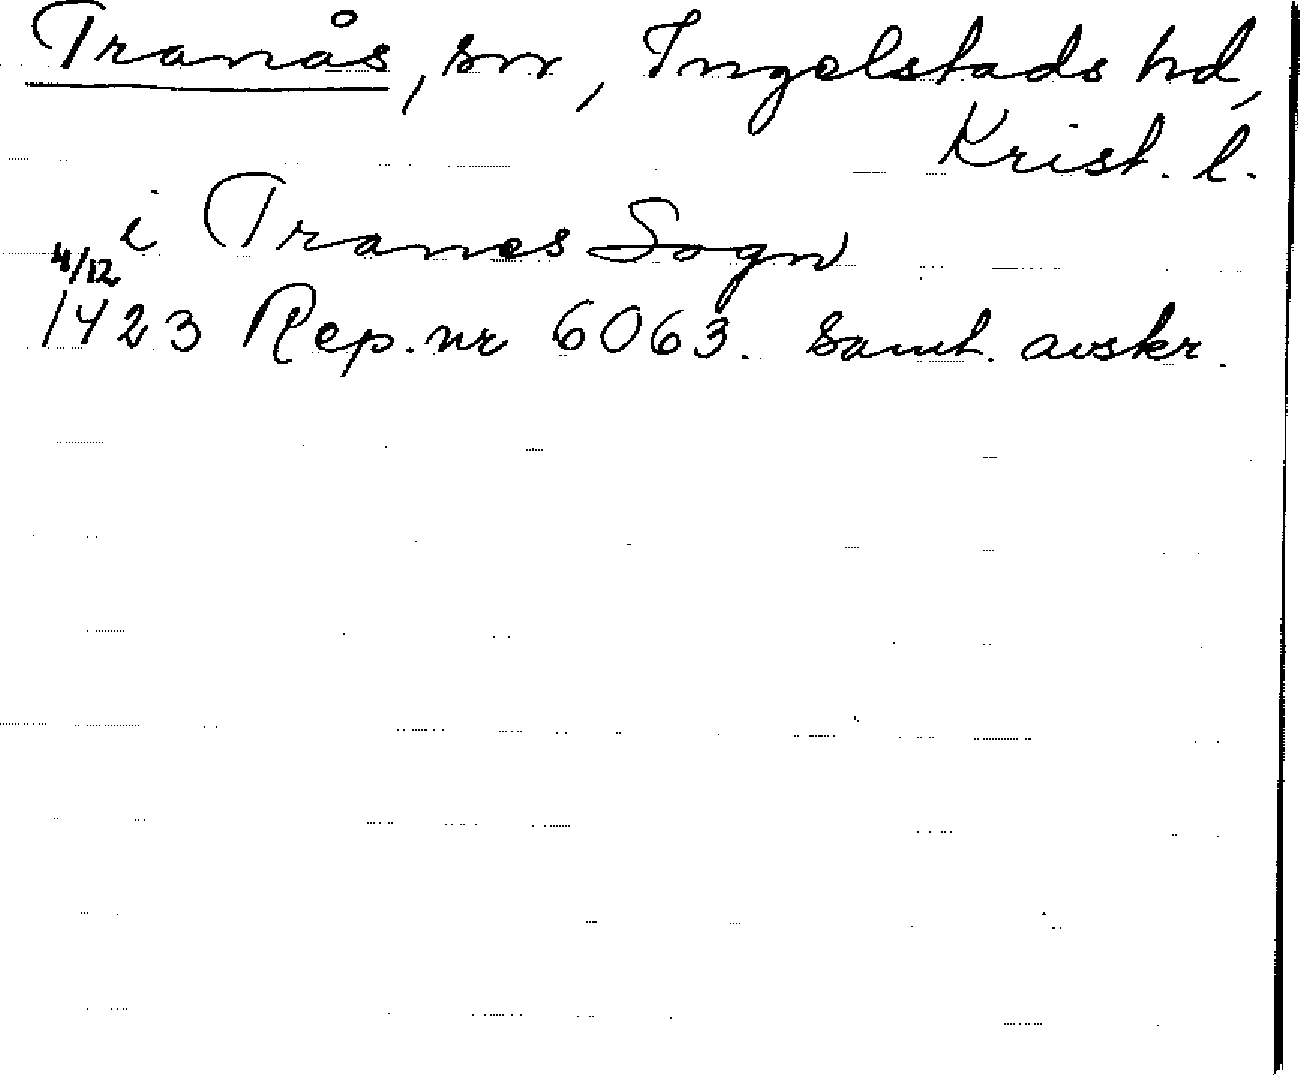 Tranås, sn, Ingelstads hd,
Krist. l.
i Tranes Sogn
4/12
1423 Rep. nr 6063. Samt. avskr.